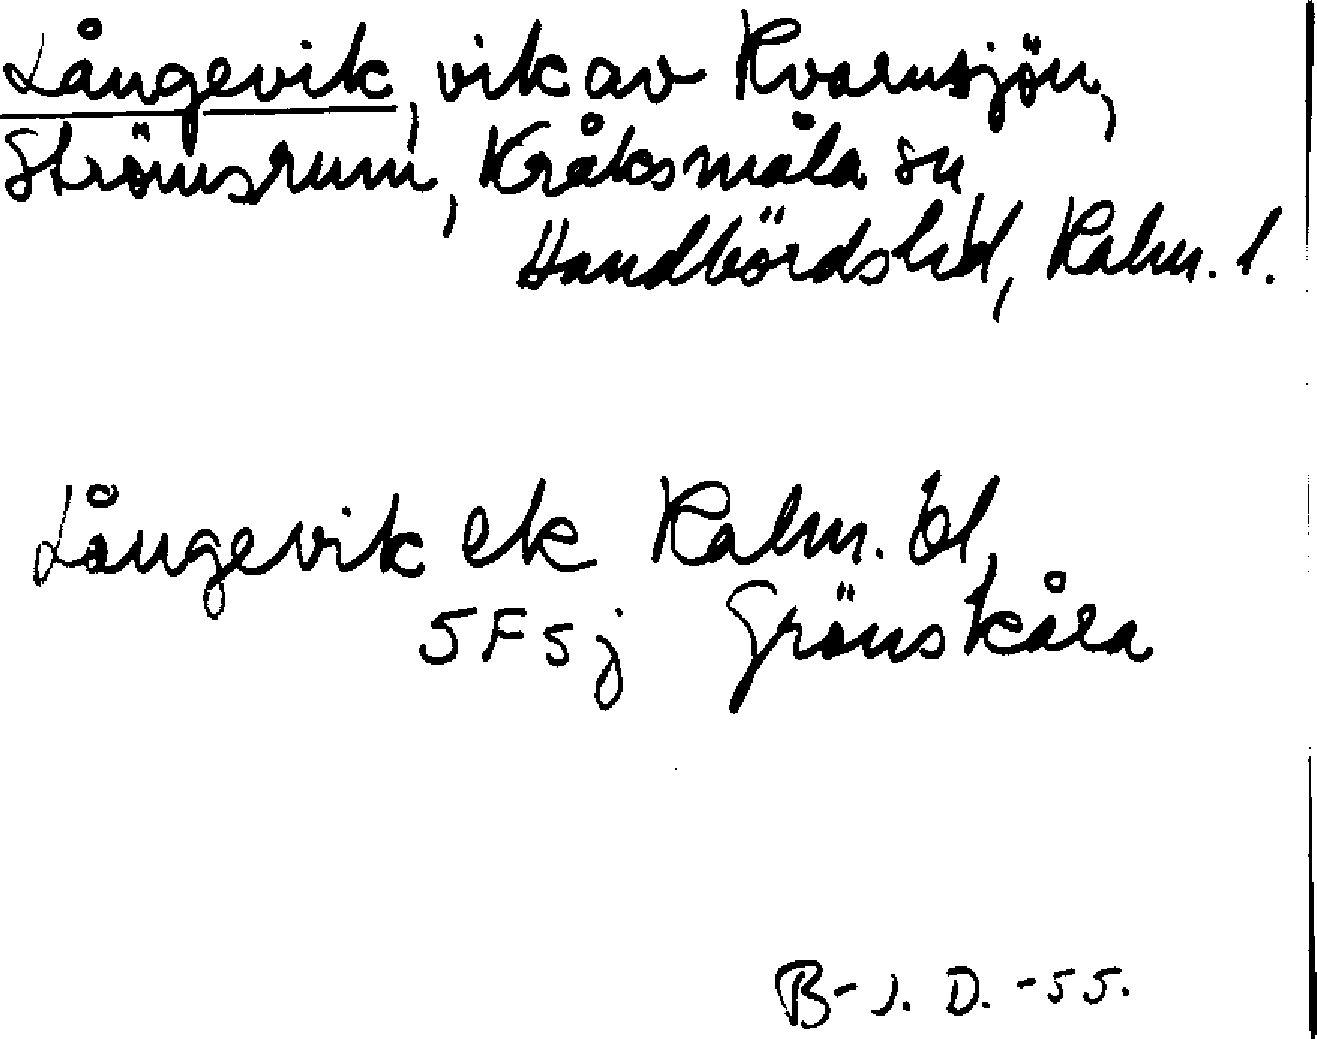 Långevik, vik av Kvarnsjön,
Strömsrum, Kråksmåla sn
Handbörds hd, Kalm. l.
Långevik ek Kalm. bl
5F5j Grönskåra
B-J. D. -55.